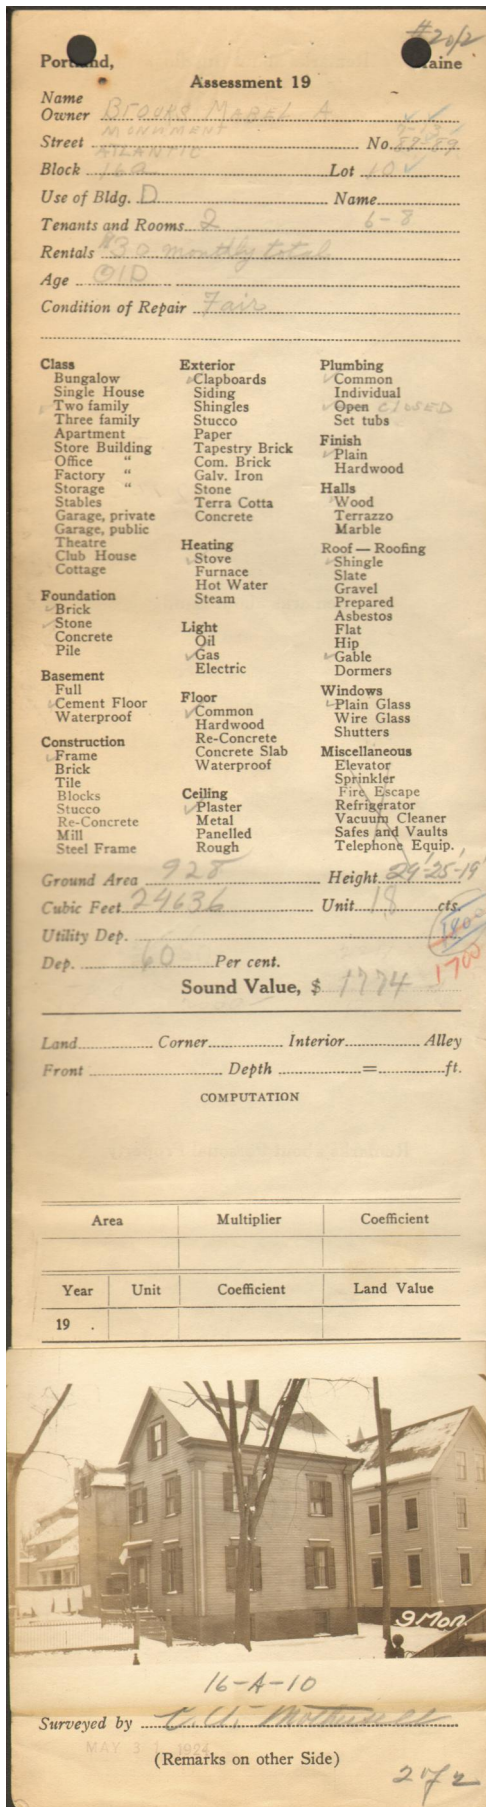 # 2 of 2
Portland, Maine
Assessment 19
Name
Owner Brooks Mabel A
MONUMENT 9-13
Street No. 87-89
ATLANTIC
Block 16a Lot 10
Use of Bldg. D Name
Tenants and Rooms 2 6-8
Rentals $30 monthly total
Age OlD
Condition of Repair Fair
Class
Bungalow
Single House
Two family
Three family
Apartment
Store Building
Office "
Factory "
Storage "
Stables
Garage, private
Garage, public
Theatre
Club House
Cottage
Foundation
Brick
Stone
Concrete
Pile
Basement
Full
Cement Floor
Waterproof
Construction
Frame
Brick
Tile
Blocks
Stucco
Re-Concrete
Mill
Steel Frame
Exterior
Clapboards
Siding
Shingles
Stucco
Paper
Tapestry Brick
Com. Brick
Galv. Iron
Stone
Terra Cotta
Concrete
Heating
Stove
Furnace
Hot Water
Steam
Light
Oil
Gas
Electric
Floor
Common
Hardwood
Re-Concrete
Concrete Slab
Waterproof
Ceiling
Plaster
Metal
Panelled
Rough
Plumbing
Common
Individual
Open CLOSED
Set tubs
Finish
Plain
Hardwood
Halls
Wood
Terrazzo
Marble
Roof — Roofing
Shingle
Slate
Gravel
Prepared
Asbestos
Flat
Hip
Gable
Dormers
Windows
Plain Glass
Wire Glass
Shutters
Miscellaneous
Elevator
Sprinkler
Fire Escape
Refrigerator
Vacuum Cleaner
Safes and Vaults
Telephone Equip.
Ground Area 928 Height 24'-25'-19'
Cubic Feet 24636 Unit 18 cts.
1800
Utility Dep.
1700
Dep. 60 Per cent.
Sound Value, $ 1774
Land Corner Interior Alley
Front Depth = ft.
COMPUTATION
Area Multiplier Coefficient
Year Unit Coefficient Land Value
19 .
9 Mon.
16-A-10
Surveyed by C. W.
MAY 31 1924
(Remarks on other Side)
272